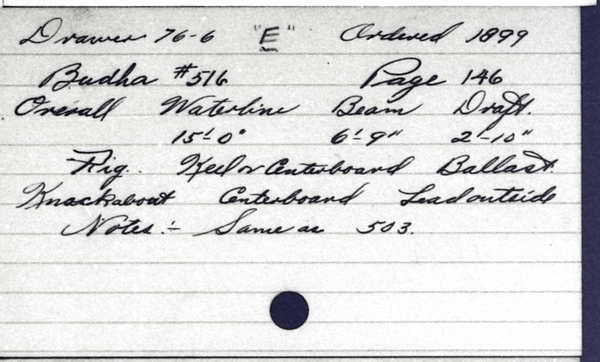 Drawer 76-6 "E" Ordered 1899
Budha #516 Page 146
Overall Waterline Beam Draft.
15'-0" 6'-9" 2'-10"
Rig. Keel or Centerboard Ballast.
Knackabout Centerboard Lead outside
Notes:- Same as 503.